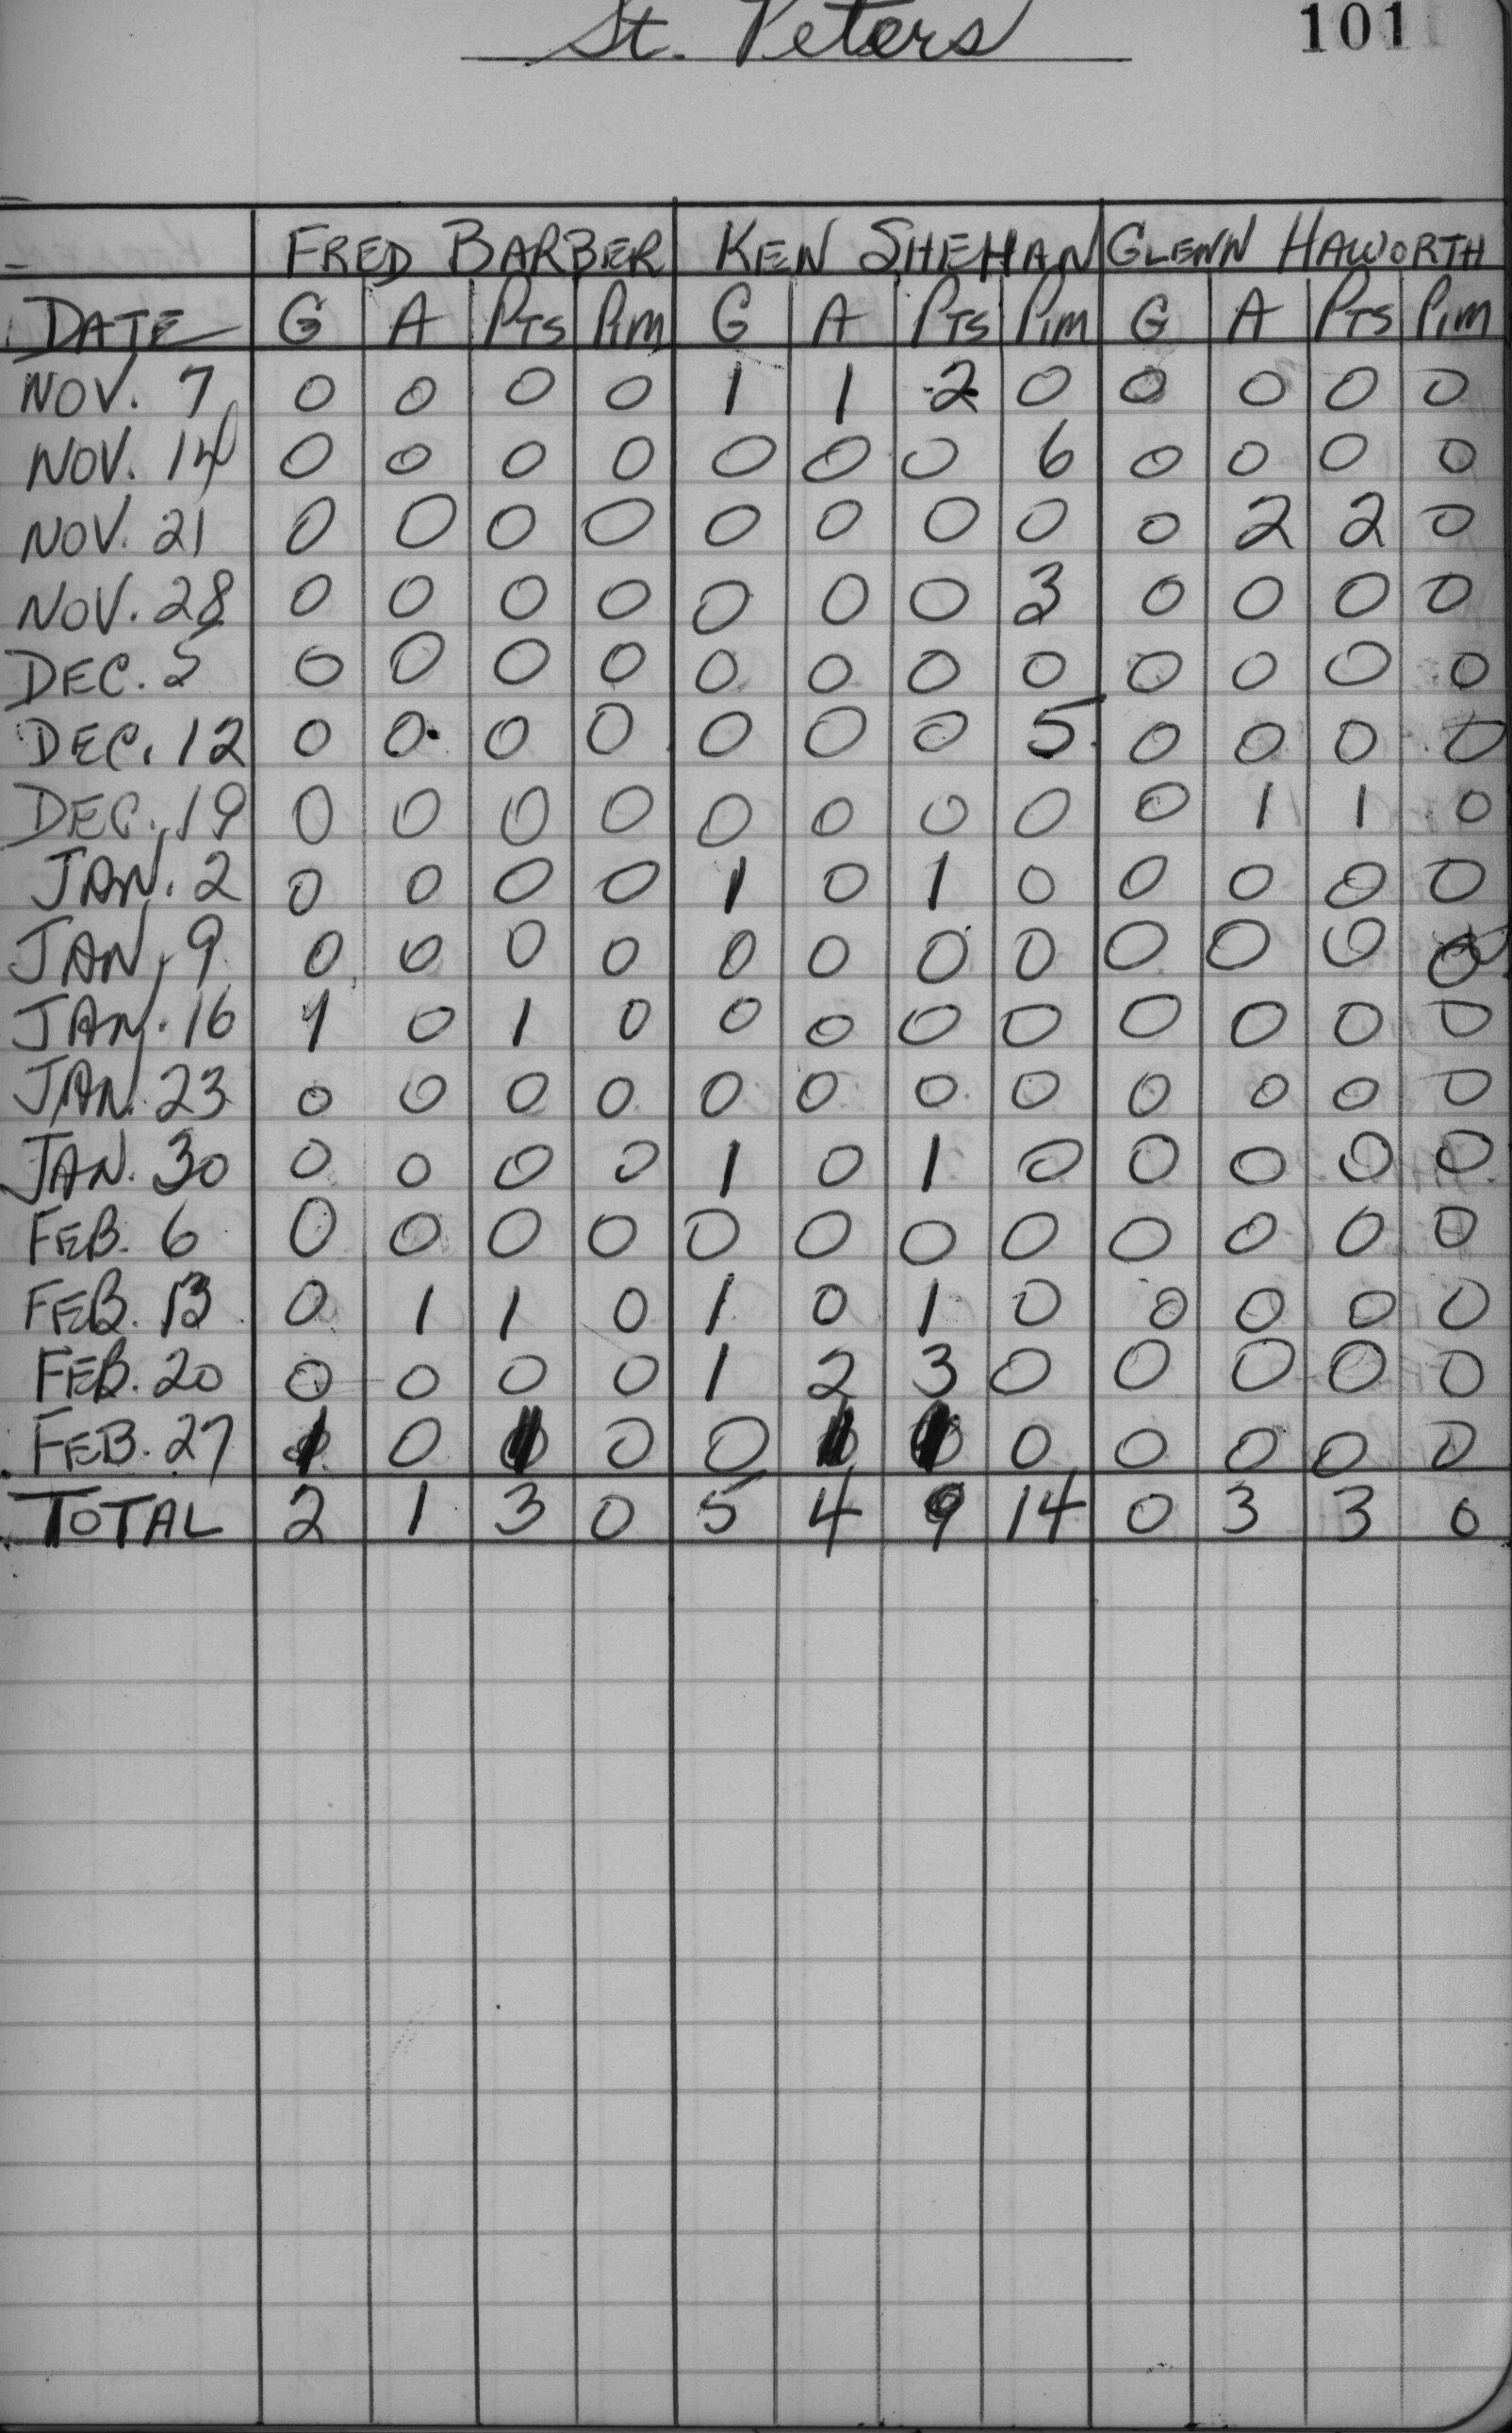 St. Peters 101
FRED BARBER KEN SHEHAN GLENN HAWORTH
DATE G A PTS PIM G A PTS PIM G A PTS PIM
NOV. 7 0 0 0 0 1 1 2 0 0 0 0 0
NOV. 14 0 0 0 0 0 0 0 6 0 0 0 0
NOV. 21 0 0 0 0 0 0 0 0 0 2 2 0
NOV. 28 0 0 0 0 0 0 0 3 0 0 0 0
DEC. 5 0 0 0 0 0 0 0 0 0 0 0 0
DEC. 12 0 0 0 0 0 0 0 5 0 0 0 0
DEC. 19 0 0 0 0 0 0 0 0 0 1 1 0
JAN. 2 0 0 0 0 1 0 1 0 0 0 0 0
JAN. 9 0 0 0 0 0 0 0 0 0 0 0 0
JAN. 16 1 0 1 0 0 0 0 0 0 0 0 0
JAN. 23 0 0 0 0 0 0 0 0 0 0 0 0
JAN. 30 0 0 0 0 1 0 1 0 0 0 0 0
FEB. 6 0 0 0 0 0 0 0 0 0 0 0 0
FEB. 13 0 1 1 0 1 0 1 0 0 0 0 0
FEB. 20 0 0 0 0 1 2 3 0 0 0 0 0
FEB. 27 1 0 1 0 0 1 1 0 0 0 0 0
TOTAL 2 1 3 0 5 4 9 14 0 3 3 0